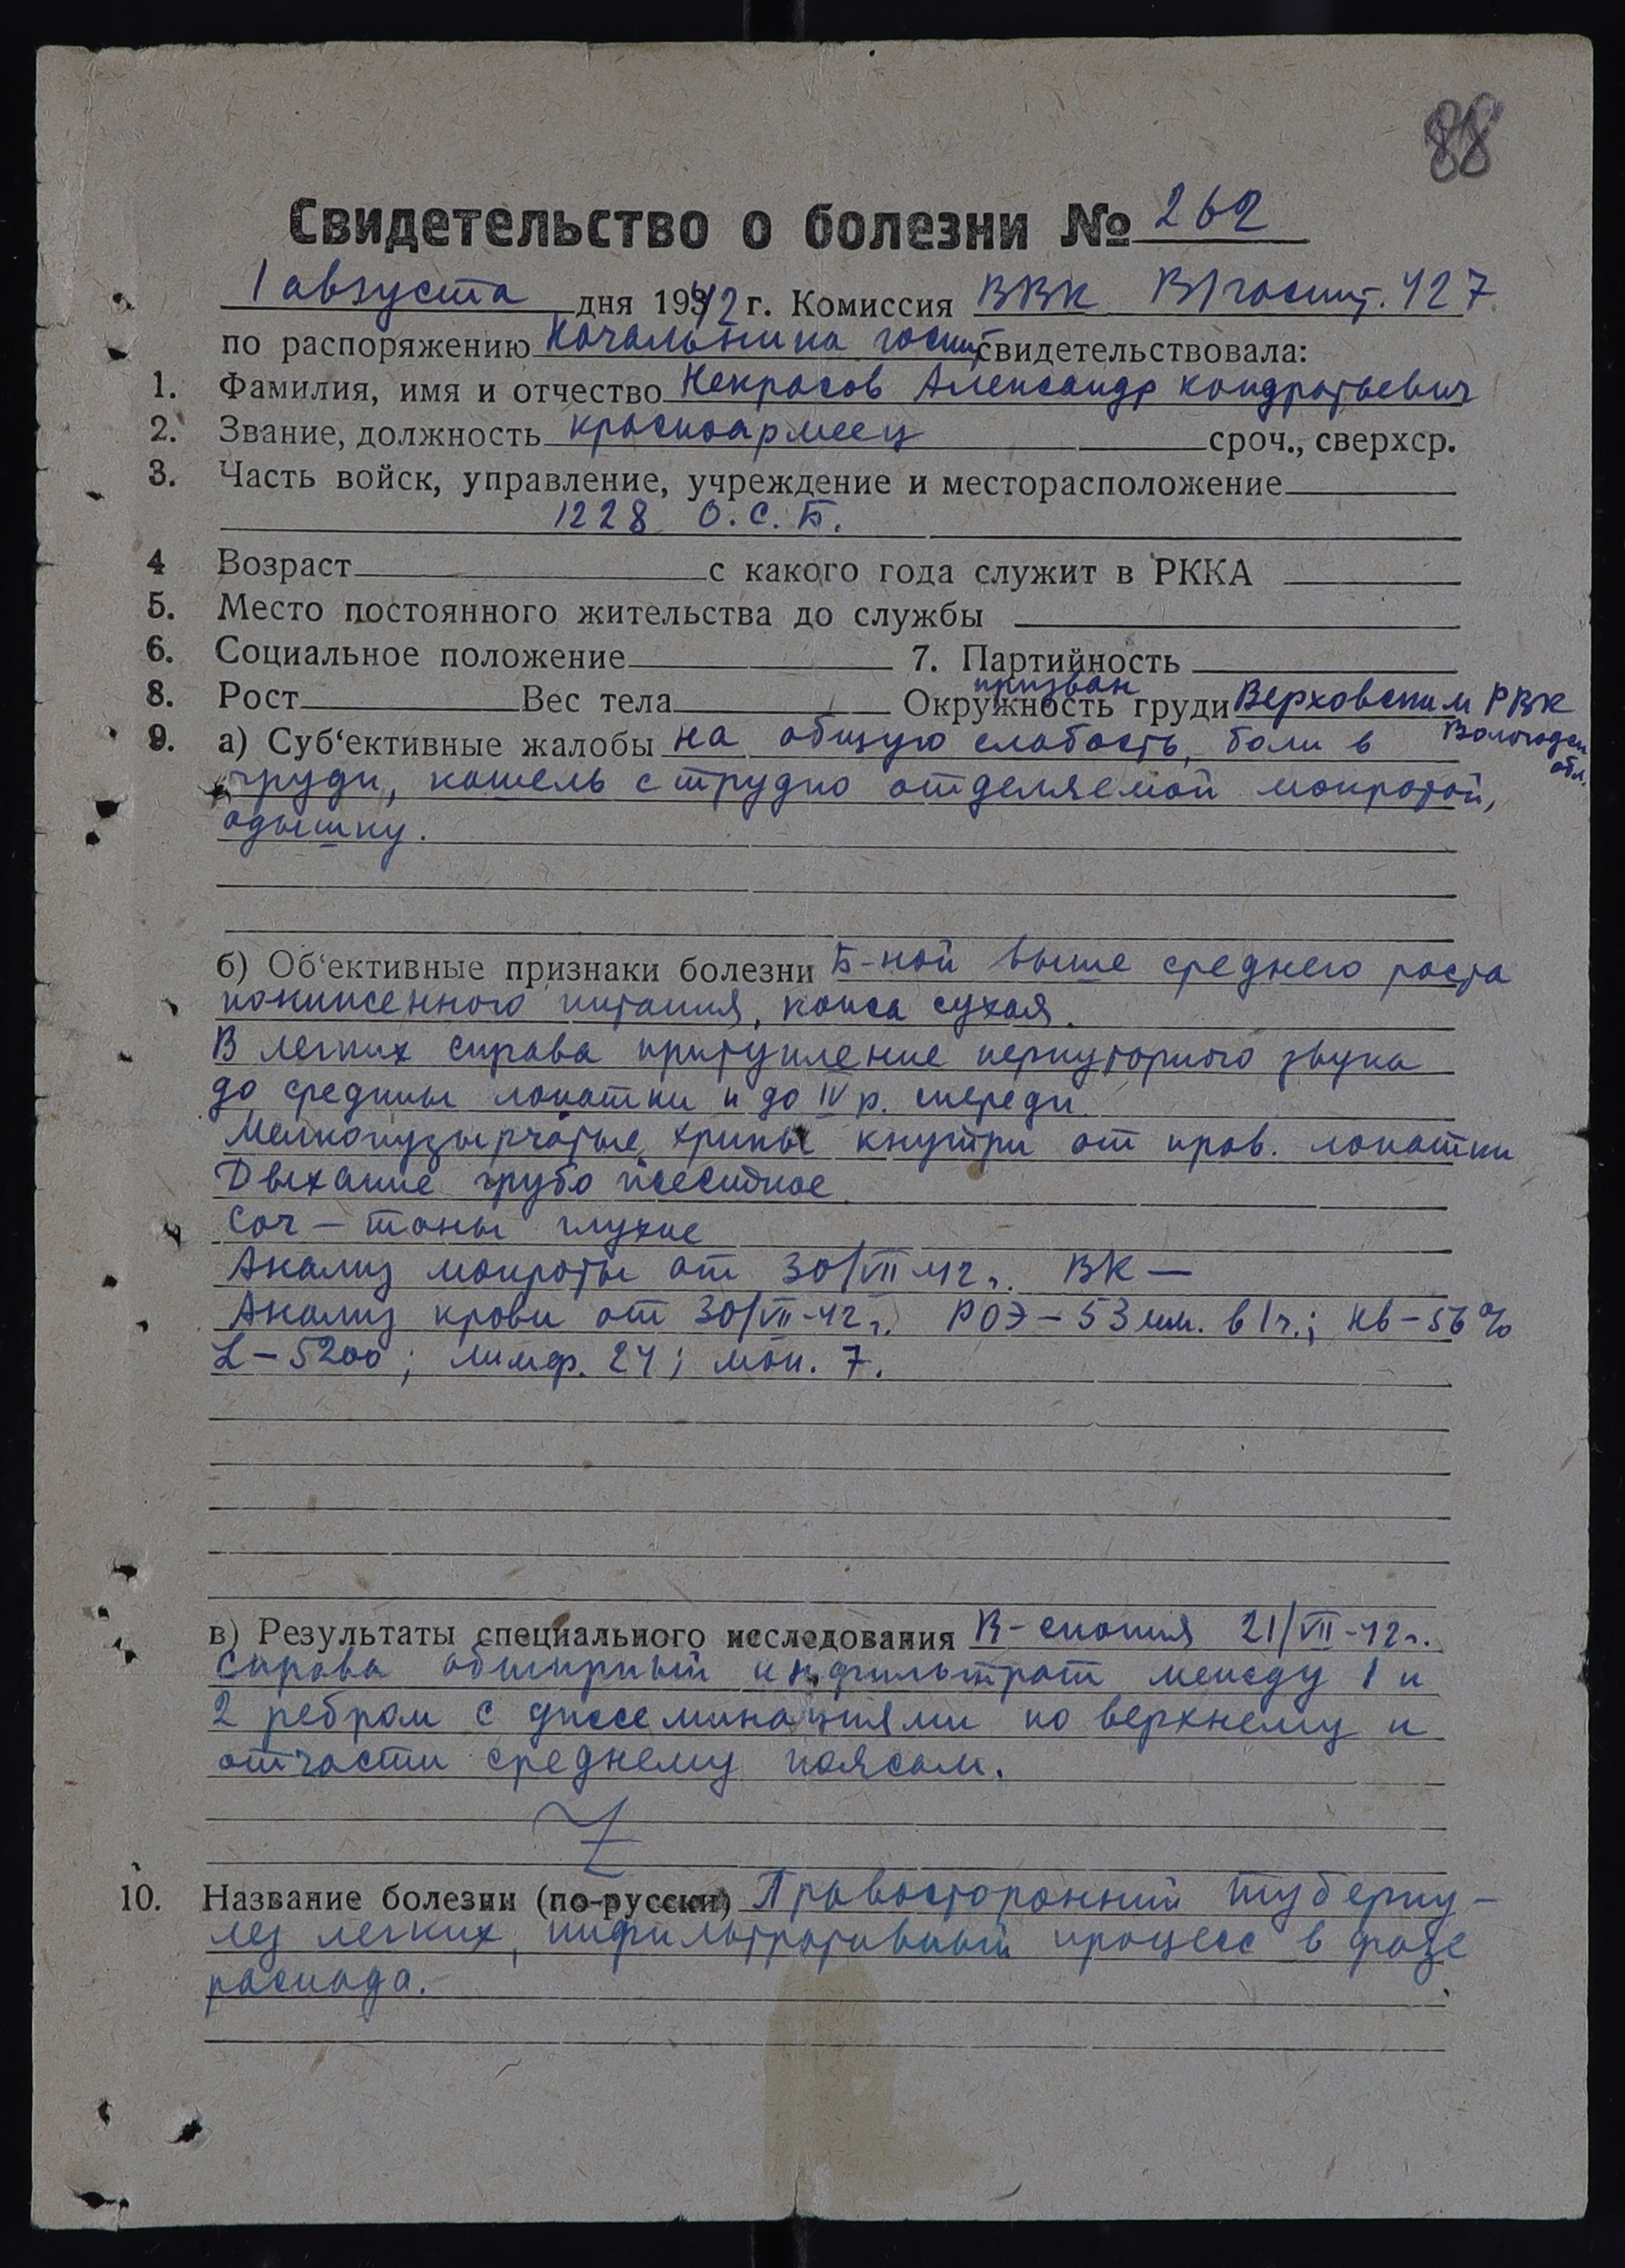 88
Свидетельство о болезни № 262
1 августа дня 1942 г. Комиссия ВВК В/госпит. 427
по распоряжению начальника госпит свидетельствовала:
1. Фамилия, имя и отчество Некрасов Александр Кондратьевич
2. Звание, должность красноармеец сроч., сверхср.
3. Часть войск, управление, учреждение и месторасположение
1228 О.С.Б.
4 Возраст с какого года служит в РККА
5. Место постоянного жительства до службы
6. Социальное положение 7. Партийность
8. Рост Вес тела Окружность груди призван Верховским РВК
Вологодск обл.
9. а) Суб‘ективные жалобы на общую слабость, боли в
груди, кашель с трудно отделяемой мокротой,
одышку.
б) Об‘ективные признаки болезни Б-ной выше среднего роста
пониженного питания, кожа сухая.
В легких справа притупление перкуторного звука
до средины лопатки и до IV р. спереди.
Мелкопузырчатые хрипы кнутри от прав. лопатки
Дыхание грубо жесткое.
Сог – тоны глухие
Анализ мокроты от 30/VII 42 г. ВК —
Анализ крови от 30/VII-42 г. РОЭ – 53 мм. в 1 ч.; Нв – 56%
L – 5200; лимф. 24; мон. 7.
в) Результаты специального исследования R-скопия 21/VII-42 г.
Справа обширный инфильтрат между 1 и
2 ребром с диссеминациями по верхнему и
отчасти среднему поясам.
10. Название болезни (по-русски) Правосторонний туберку-
лез легких, инфильтративный процесс в фазе
распада.